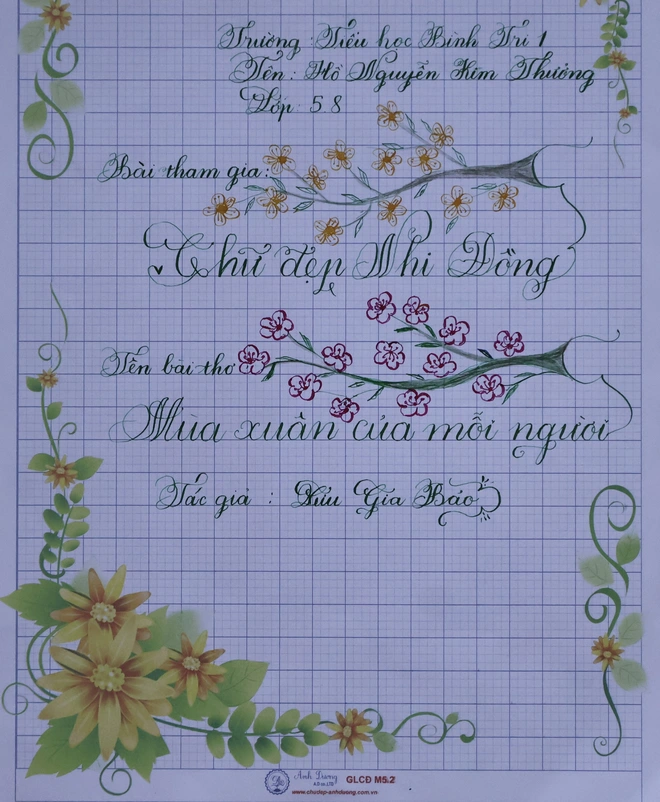 Trường : Tiểu học Bình Trí 1
Tên : Hồ Nguyễn Kim Thưởng
Lớp : 5 8
Bài tham gia :
Chữ đẹp Nhi Đồng
Tên bài thơ
Mùa xuân của mỗi người
Tác giả : Lưu Gia Bảo
Ánh Dương
GLCĐ M5.2
www.chudep-anhduong.com.vn